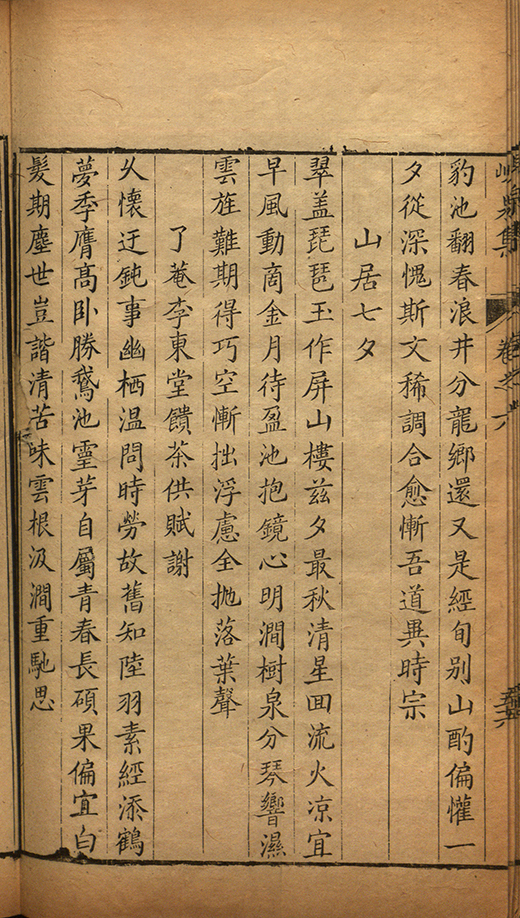 峴泉集 卷之六
豹池翻春浪井分龍鄉還又是經旬別山酌偏懽一
夕從深愧斯文稀調合愈慚吾道異時宗
山居七夕
翠盖琵琶玉作屏山樓茲夕最秋清星囬流火凉宜
早風動商金月待盈池抱鏡心明澗樹泉分琴響濕
雲旌難期得巧空慚拙浮慮全抛落葉聲
了菴李東堂饋茶供賦謝
乆懷迂鈍事幽栖温問時勞故舊知陸羽素經添鶴
夢季膺高卧勝鵞池靈芽自屬青春長碩果偏宜白
髮期塵世豈諧清苦味雲根汲澗重馳思